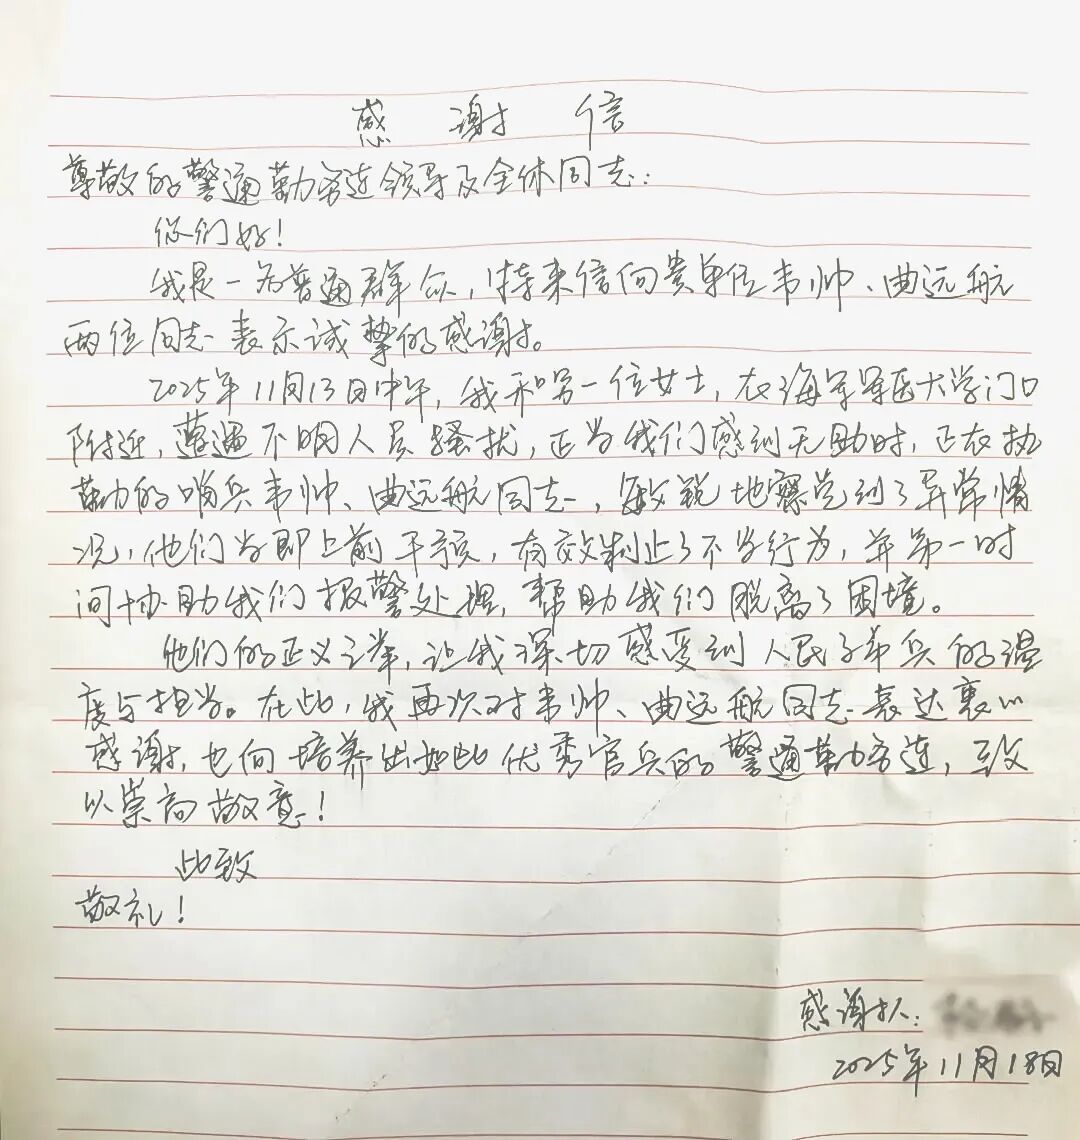 感谢信
尊敬的警通勤务连领导及全体同志:
你们好!
我是一名普通群众,特来信向贵单位韦帅、曲远航
两位同志表示诚挚的感谢。
2025年11月13日中午,我和另一位女士,在海军军医大学门口
附近,遭遇不明人员骚扰,正当我们感到无助时,正在执
勤的哨兵韦帅、曲远航同志,敏锐地察觉到了异常情
况,他们当即上前干预,有效制止了不当行为,并第一时
间协助我们报警处理,帮助我们脱离了困境。
他们的正义之举,让我深切感受到人民子弟兵的温
度与担当。在此,我再次对韦帅、曲远航同志表达衷心
感谢,也向培养出如此优秀官兵的警通勤务连,致
以崇高敬意!
此致
敬礼!
感谢人:
2025年11月18日